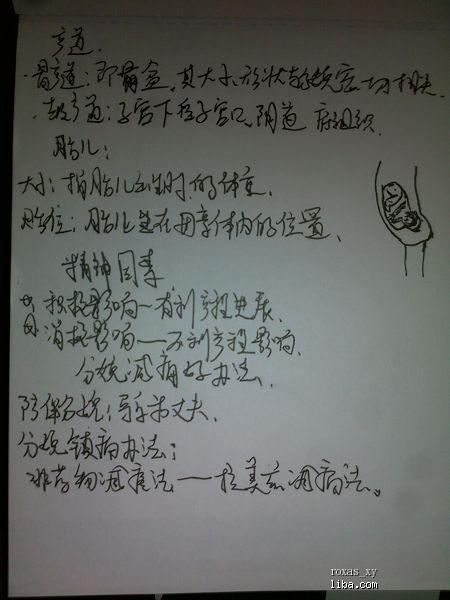 产道.
·骨产道：即骨盆，其大小、形状与分娩密切相关.
·软产道：子宫下段、子宫口、阴道 底组织.
胎儿：
大小：指胎儿出生时的体重.
胎位：胎儿在母亲体内的位置、
精神因素
积极影响—有利产程进展.
消极影响—不利产程影响.
分娩减痛好办法、
陪伴分娩：导乐 丈夫.
分娩镇痛办法：
非药物减痛法——拉美兹减痛法。
roxas_xy
liba.com